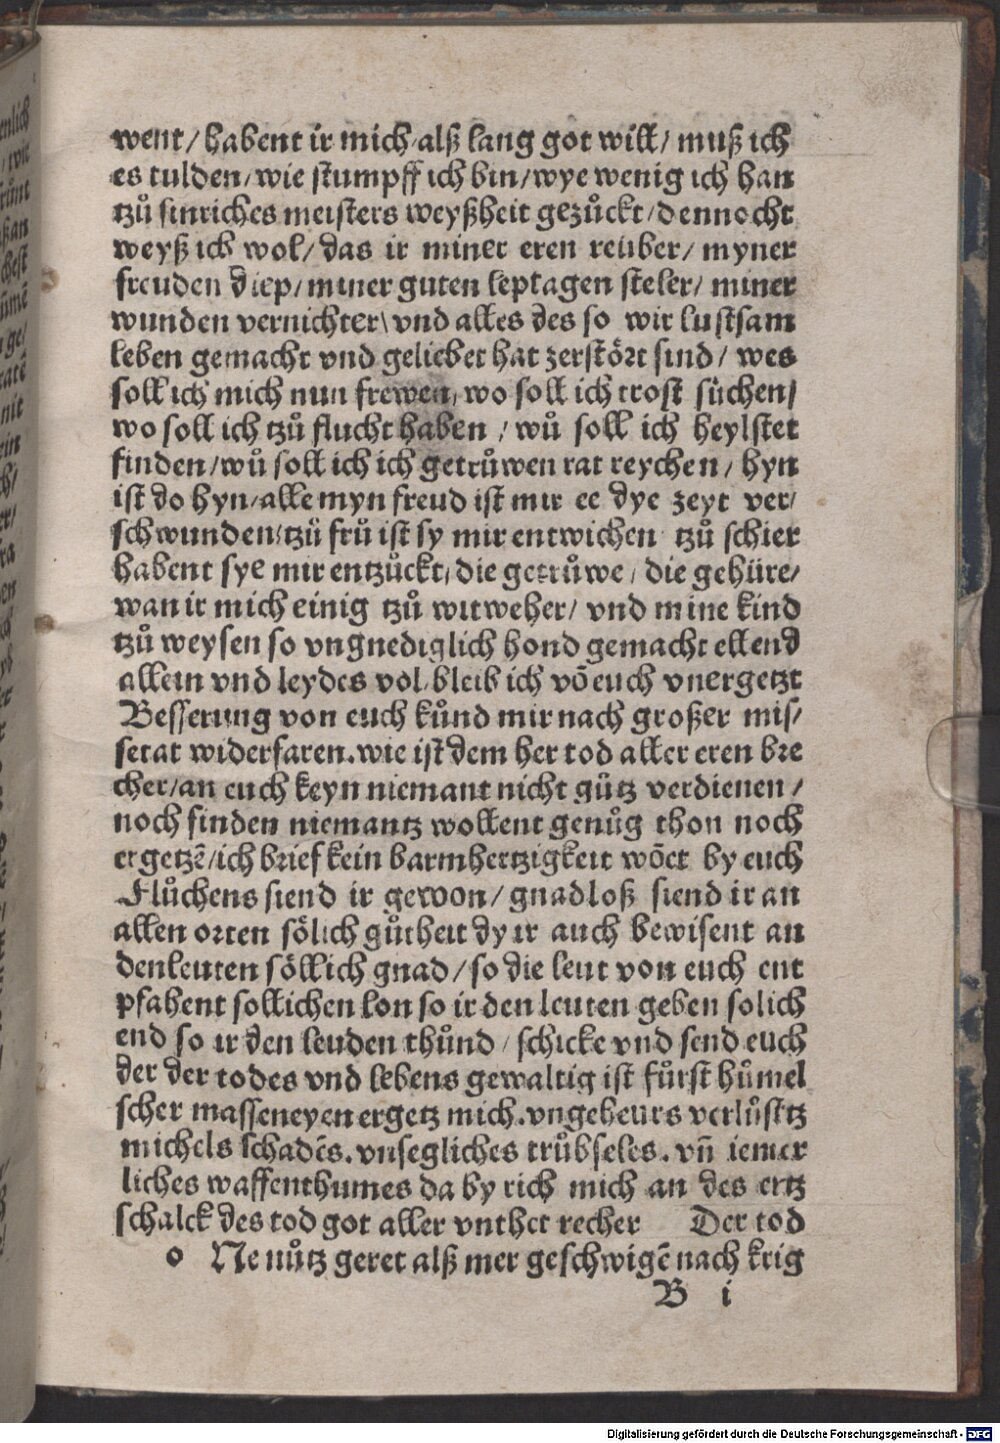 went/ habent ir mich alß lang got will/ muß ich
es tulden/ wie stumpff ich bin/ wye wenig ich han
tzů sinriches meisters weyßheit gezůckt/ dennocht
weyß ich wol/ das ir miner eren reuber/ myner
freuden diep/ miner guten leptagen steler/ miner
wunden vernichter\ vnd alles des so wir lustsam
leben gemacht vnd geliebet hat zerstört sind/ wes
soll ich mich nun frewen, wo soll ich trost süchen/
wo soll ich tzů flucht haben / wů soll ich heylstet
finden/ wů soll ich ich getrůwen rat reychen/ hyn
ist do hyn/ alle myn freud ist mir ee dye zeyt ver/
schwunden/ tzů frů ist sy mir entwichen tzů schier
habent sye mir entzůckt, die getrůwe/ die gehüre/
wan ir mich einig tzů witweher/ vnd mine kind
tzů weysen so vngnediglich hond gemacht ellend
allein vnd leydes vol bleib ich võ euch vnergetzt
Besserung von euch kůnd mir nach großer mis/
setat widerfaren. wie ist dem her tod aller eren bre
cher/ an euch keyn niemant nicht gůtz verdienen/
noch finden niemantz wollent genůg thon noch
ergetzẽ/ ich brief kein barmhertzigkeit wõet by euch
Flůchens siend ir gewon/ gnadloß siend ir an
allen orten sölich gůtheit dy ir auch bewisent an
den leuten söllich gnad/ so die leut von euch ent
pfahent sollichen lon so ir den leuten geben solich
end so ir den leuden thůnd / schicke vnd send euch
der der todes vnd lebens gewaltig ist fůrst hůmel
scher masseneyen ergetz mich. vngeheurs verlůstz
michels schadẽs. vnsegliches trůbseles. vñ iemer
liches waffenthumes da by rich mich an des ertz
schalck des tod got aller vnthet recher Der tod
o Ne nůtz geret alß mer geschwigẽ nach krig
B i
Digitalisierung gefördert durch die Deutsche Forschungsgemeinschaft - DFG